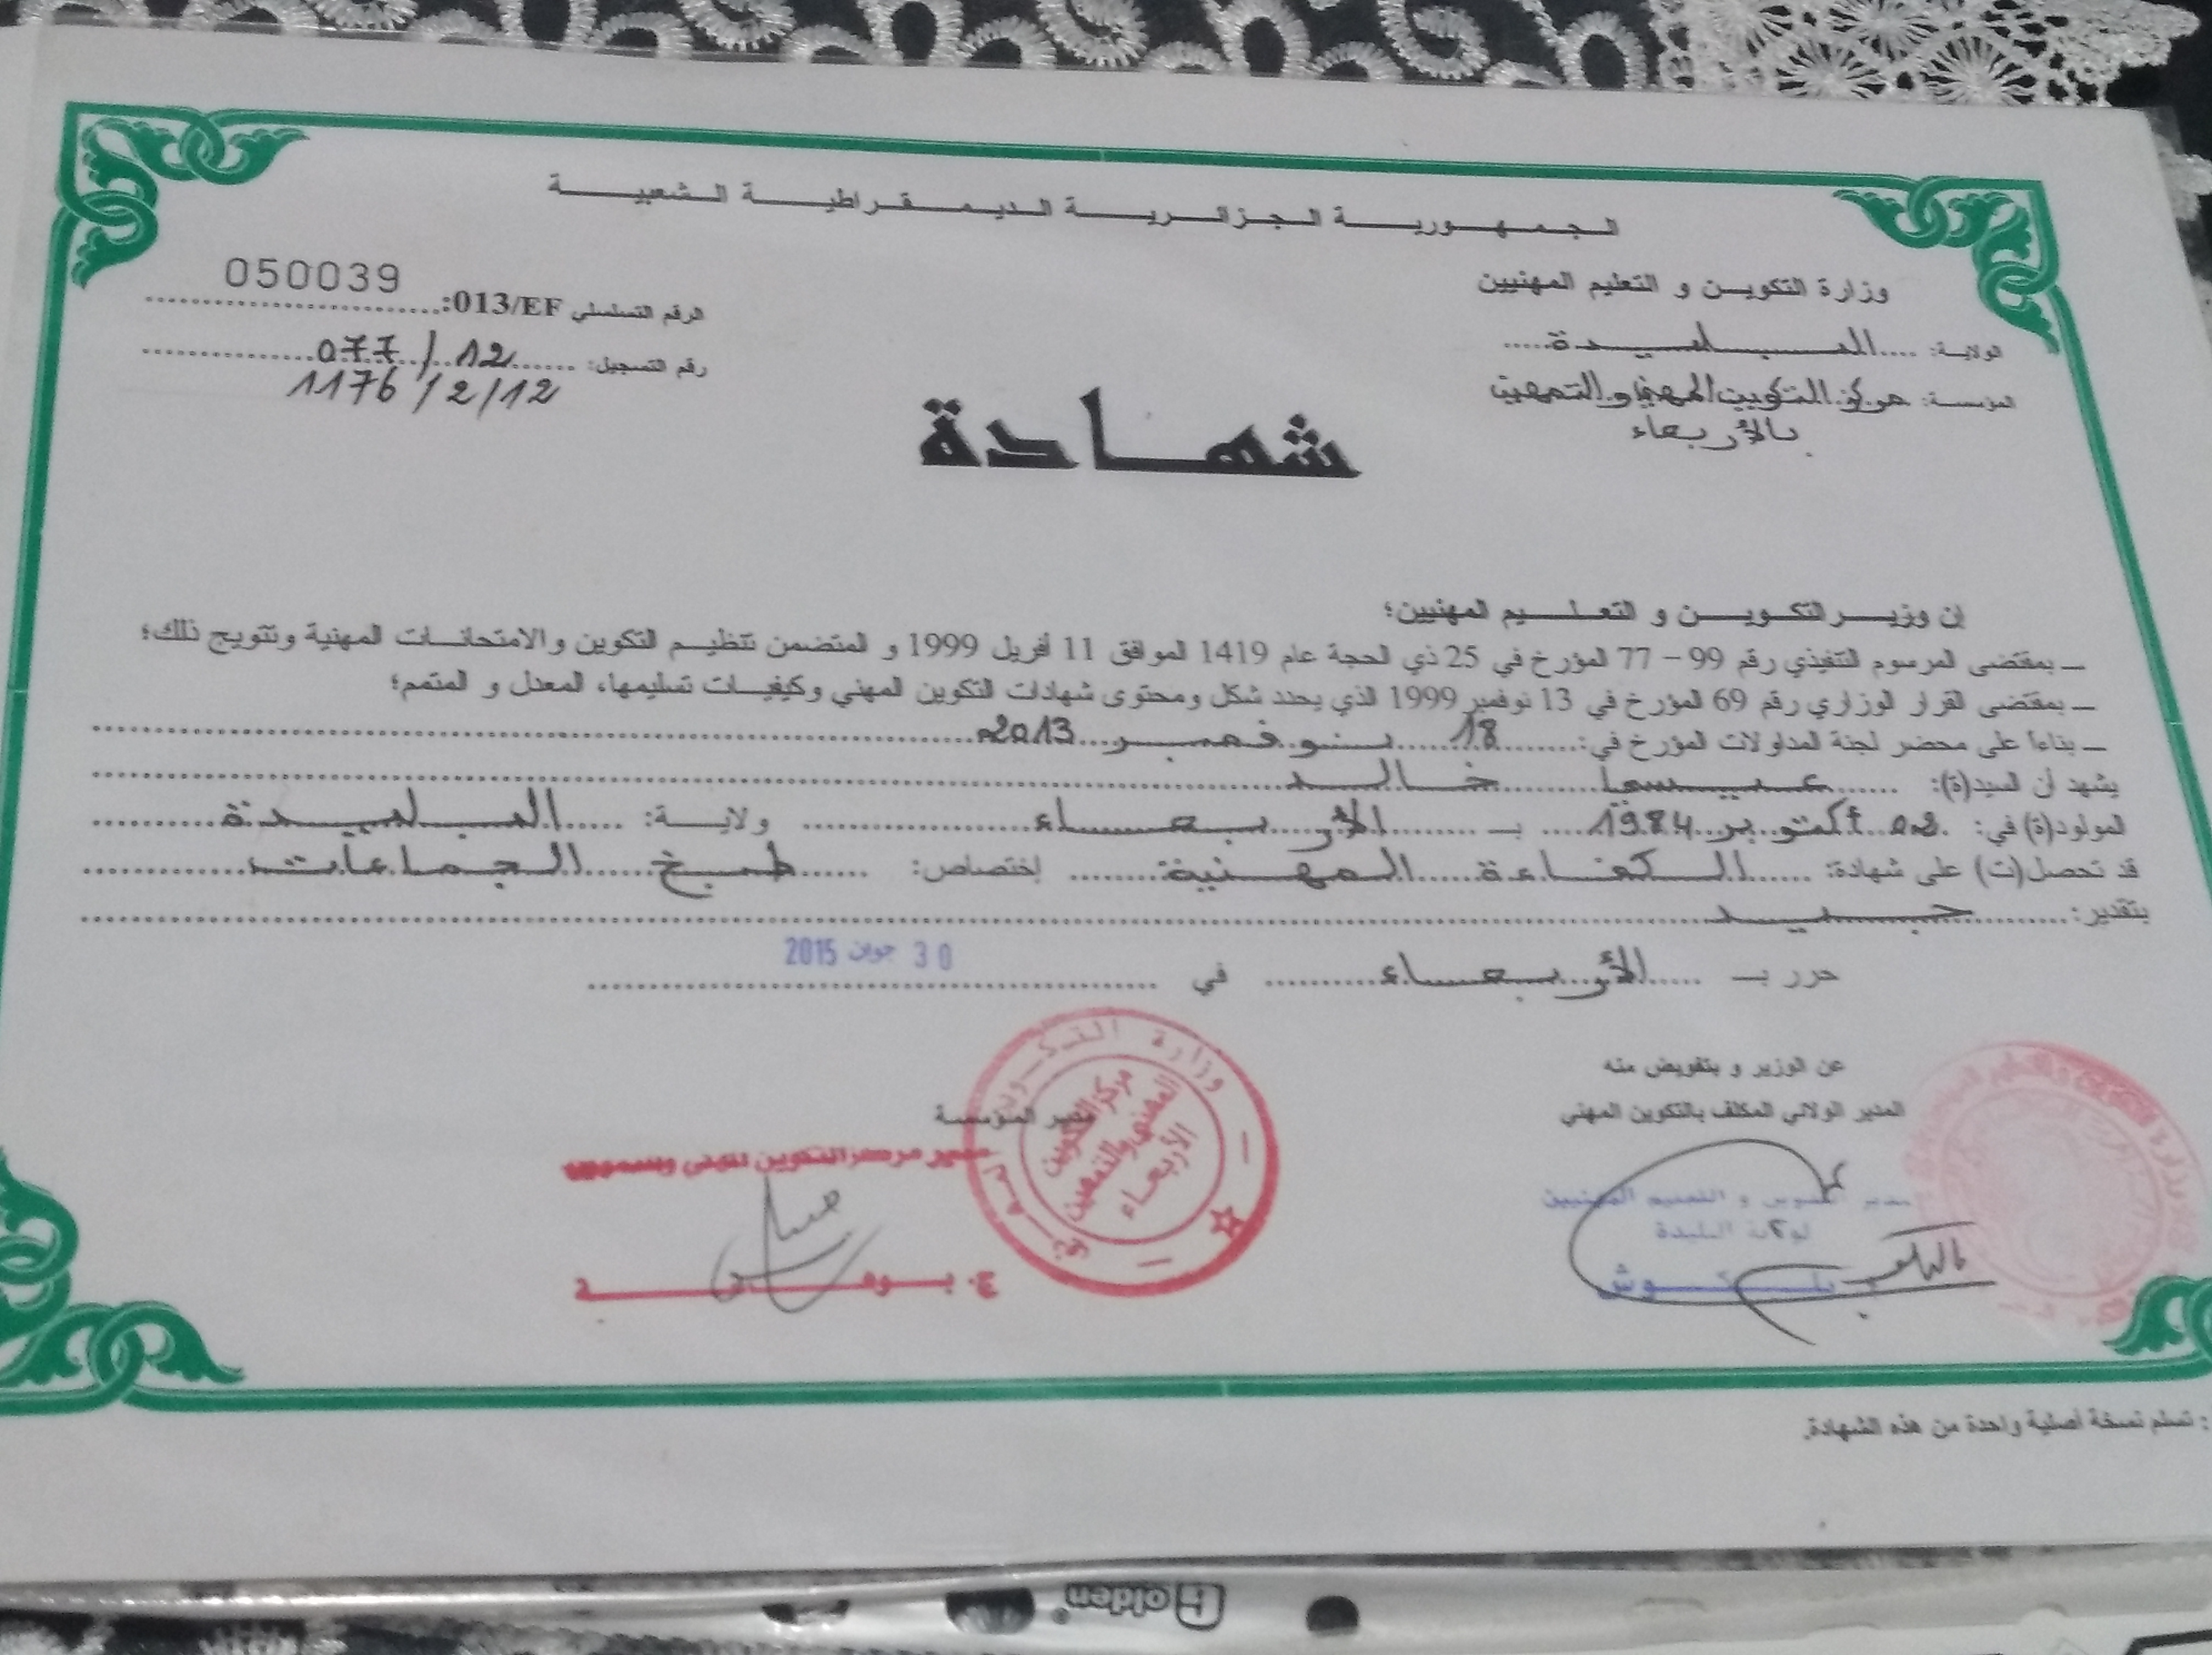 الجمهورية الجزائرية الديمقراطية الشعبية
وزارة التكوين و التعليم المهنيين
الولاية: البليدة
المؤسسة: مركز التكوين المهني و التمهين
بالأربعاء
050039
الرقم التسلسلي 013/EF:
رقم التسجيل: 077/12
1176/2/12
شهادة
إن وزير التكوين و التعليم المهنيين؛
ـ بمقتضى المرسوم التنفيذي رقم 99 – 77 المؤرخ في 25 ذي الحجة عام 1419 الموافق 11 أفريل 1999 و المتضمن تنظيم التكوين والامتحانات المهنية وتتويج ذلك؛
ـ بمقتضى القرار الوزاري رقم 69 المؤرخ في 13 نوفمبر 1999 الذي يحدد شكل ومحتوى شهادات التكوين المهني وكيفيات تسليمها، المعدل و المتمم؛
ـ بناءا على محضر لجنة المداولات المؤرخ في: 18 نوفمبر 2013
يشهد أن السيد(ة): خالد
المولود(ة) في: أكتوبر 1984 بـ الأربعاء ولاية: البليدة
قد تحصل(ت) على شهادة: الكفاءة المهنية إختصاص: طبخ الجماعات
بتقدير: جيد
حرر بـ الأربعاء في 30 جوان 2015
عن الوزير و بتفويض منه
المدير الولائي المكلف بالتكوين المهني
مدير التكوين و التعليم المهنيين
لولاية البليدة
مدير المؤسسة
مدير مركز التكوين المهني والتمهين
وزارة التكوين
مركز التكوين
المهني والتمهين
الأربعاء
: تسلم نسخة أصلية واحدة من هذه الشهادة.
Holden